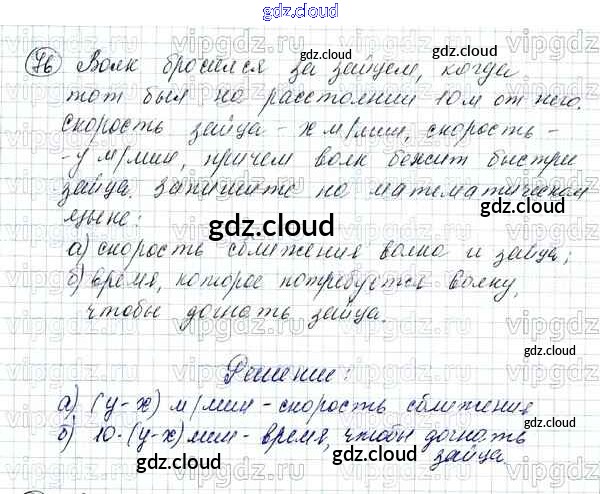 gdz.cloud
76 Волк бросился за зайцем, когда
тот был на расстоянии 10м от него.
скорость зайца - х м/мин, скорость -
- у м/мин, причем волк бежит быстрее
зайца. Запишите на математическом
языке:
а) скорость сближения волка и зайца;
б) время, которое потребуется волку,
чтобы догнать зайца.
Решение:
а) (у-х) м/мин - скорость сближения
б) 10·(у-х) мин - время, чтобы догнать
зайца.
gdz.cloud
gdz.cloud
gdz.cloud
gdz.cloud
gdz.cloud
gdz.cloud
gdz.cloud
gdz.cloud
vipgdz.ru